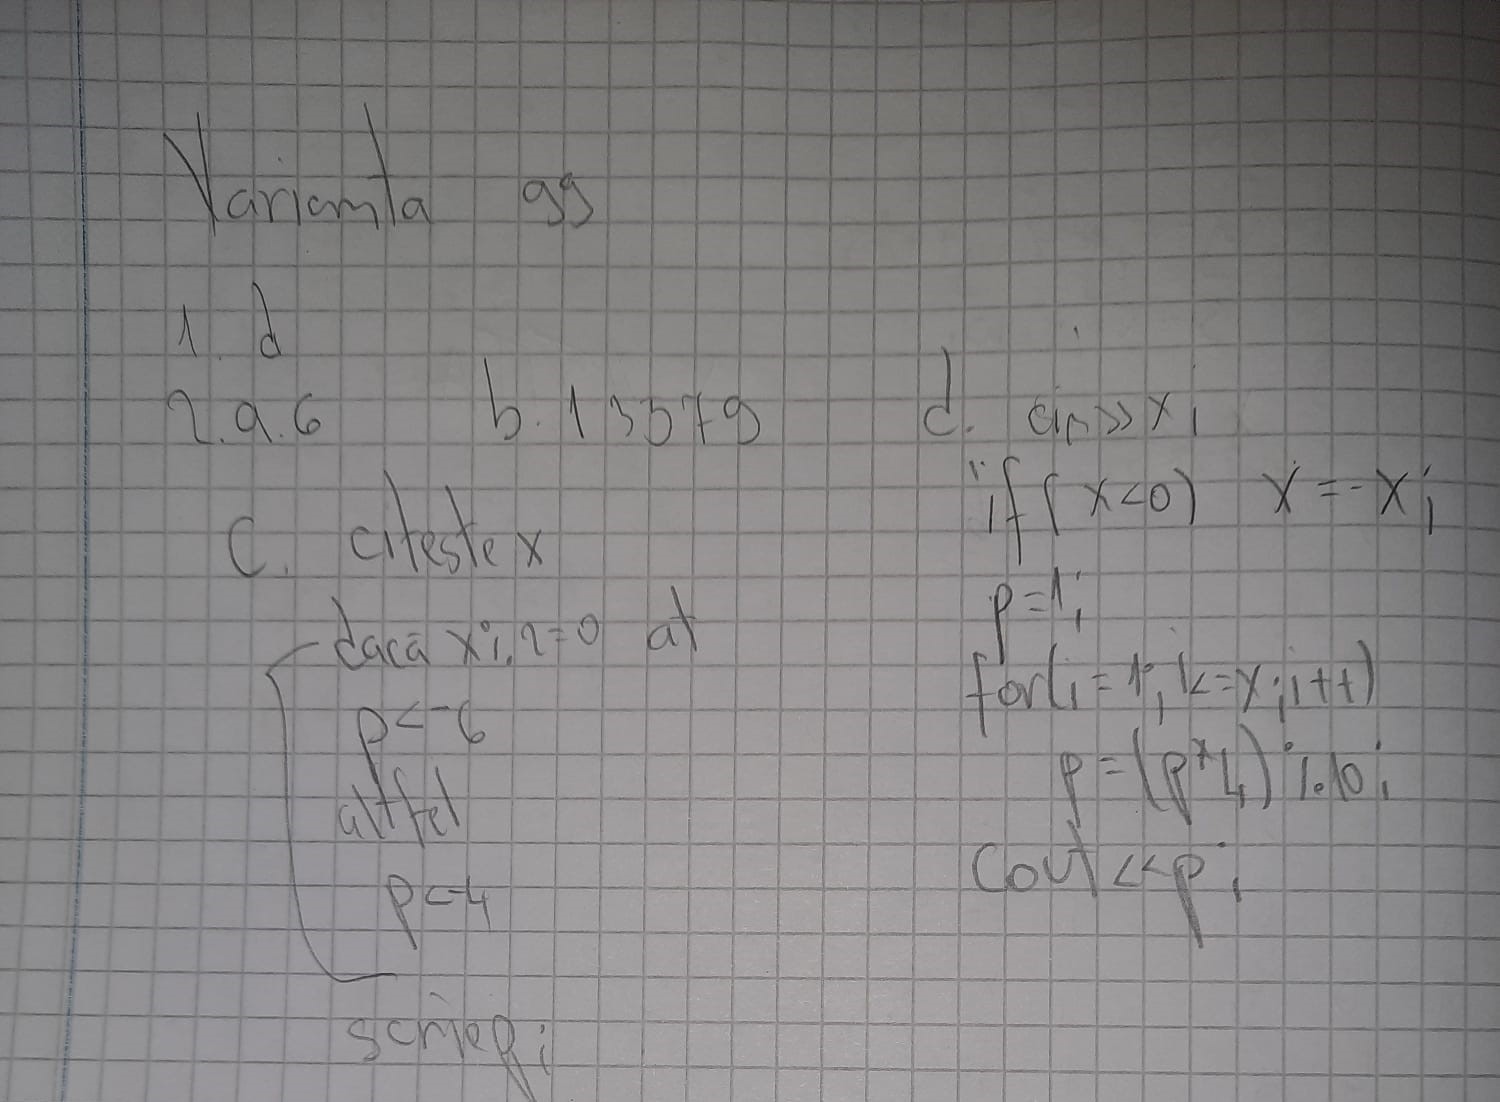 Varianta 99
1. d
2. a. 6
b. 13579
c. citeste x
daca x%2=0 at
p<-6
altfel
p<-4
scrie p;
d. cin>>x;
if(x<0) x=-x;
p=1;
for(i=1;i<=x;i++)
p=(p*4)%10;
cout<<p;